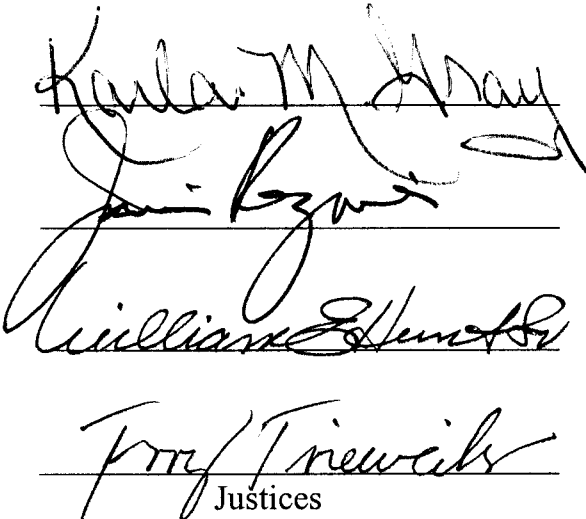 Karla M. Gray
Jim Regnier
William E Hunt Sr
Terry Trieweiler
Justices